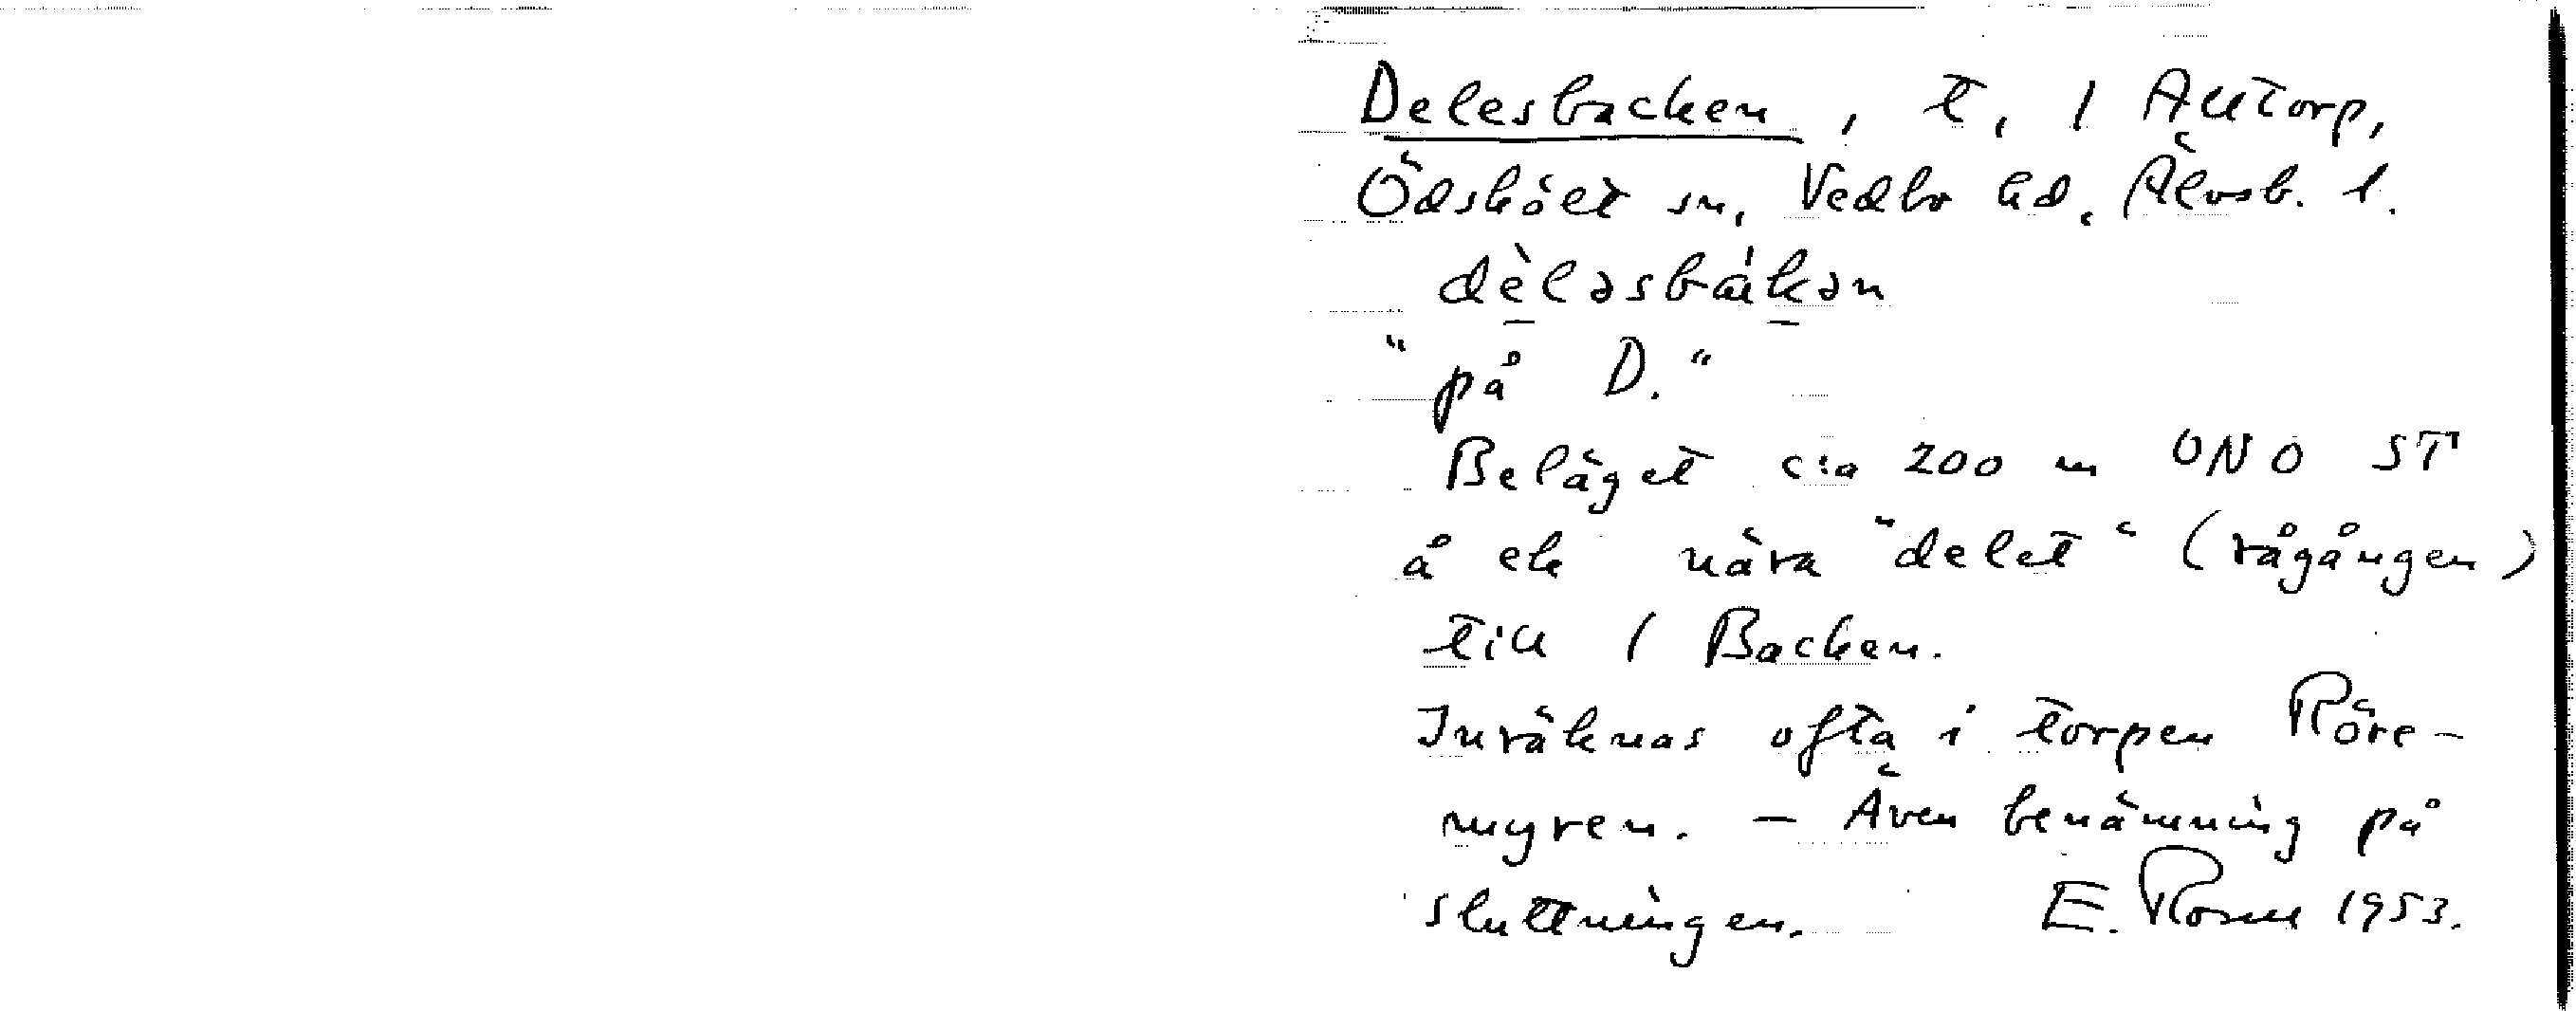 Delesbacken, t, 1 Alltorp,
Ödskölt sn, Vedbo hd, Älvsb. l.
dèləsbákən
"på D."
Beläget c:a 200 m ONO ST
å ek nära "delet" (rågången)
till 1 Backen.
Inräknas ofta i torpen Röre-
myren. - Även benämning på
sluttningen. E. Rosell 1953.